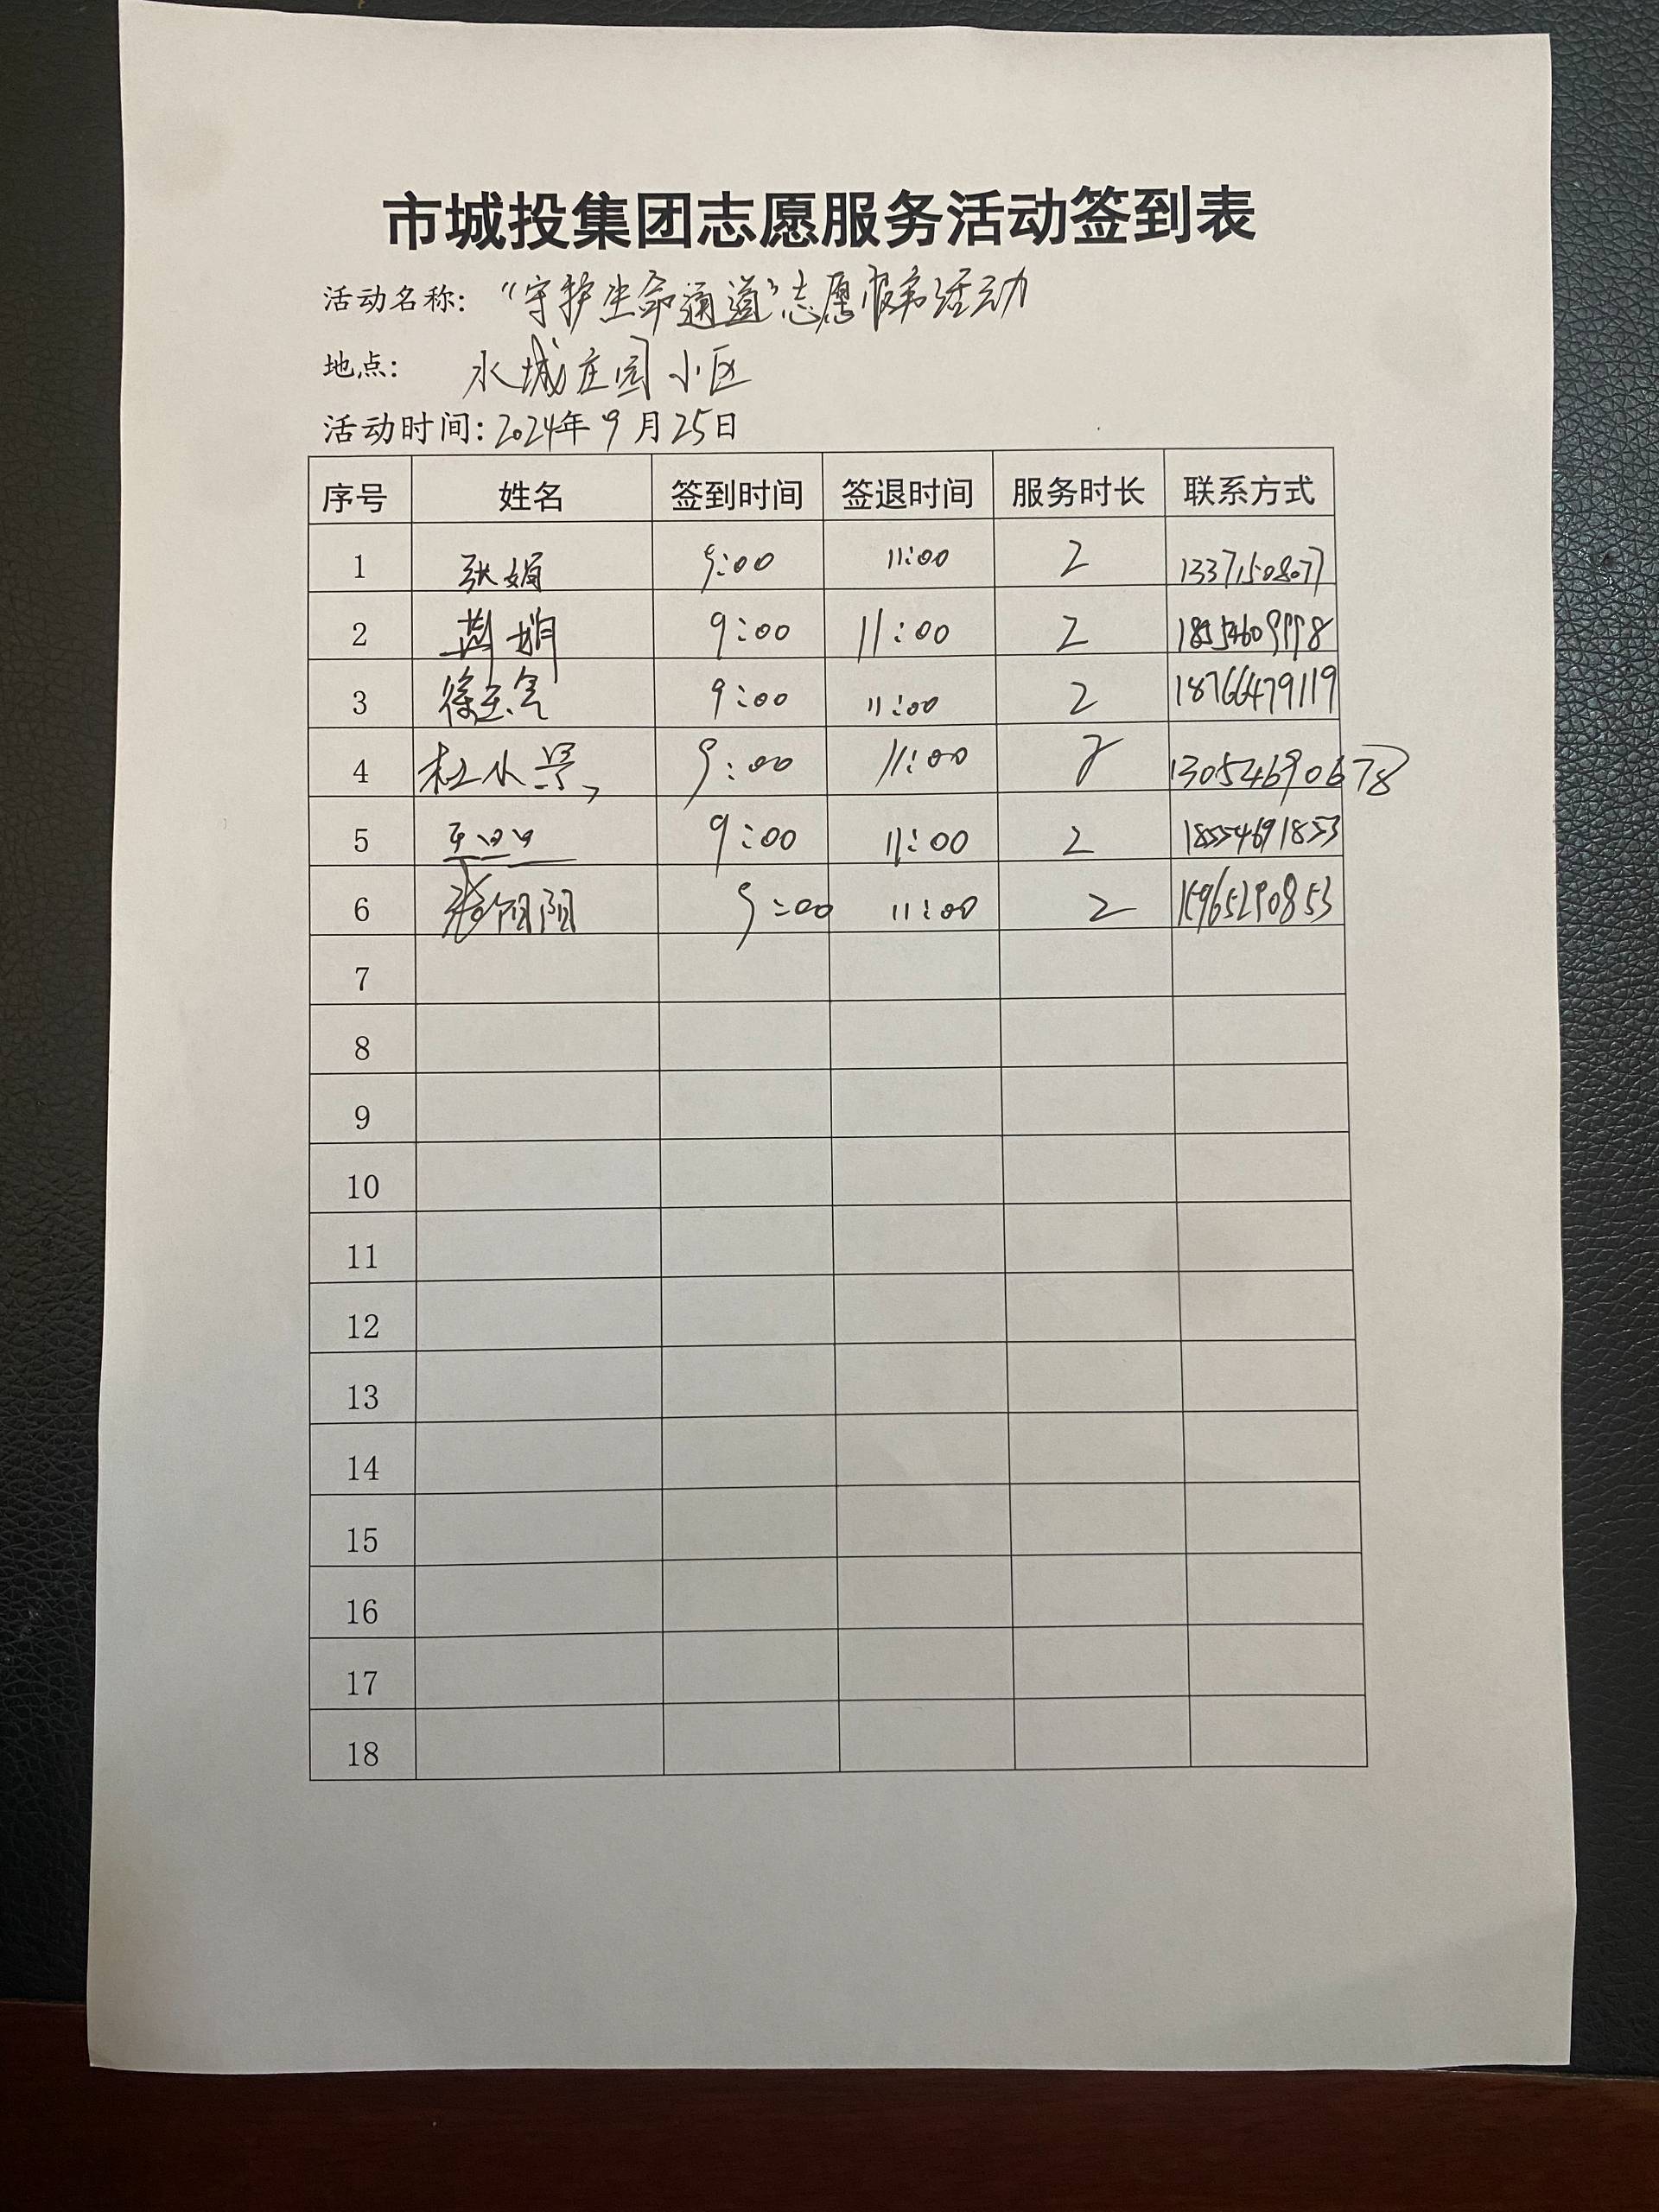 市城投集团志愿服务活动签到表
活动名称: “守护生命通道”志愿服务活动
地点: 水城庄园小区
活动时间: 2024年9月25日
序号 姓名 签到时间 签退时间 服务时长 联系方式
1 张娟 9:00 11:00 2 13371508077
2 9:00 11:00 2 18554609998
3 徐 9:00 11:00 2 18766479119
4 杜小 9:00 11:00 2 13054690678
5 9:00 11:00 2 18554691853
6 张 阳 9:00 11:00 2 15965290853
7
8
9
10
11
12
13
14
15
16
17
18